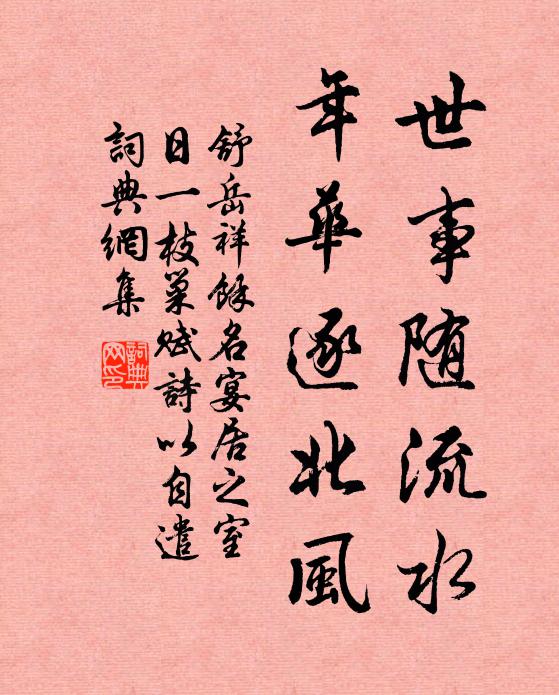 世事随流水
年華逐北風
舒岳祥餘名宴居之室
日一枝巢賦詩以自遣
詞典網集
詞典網印